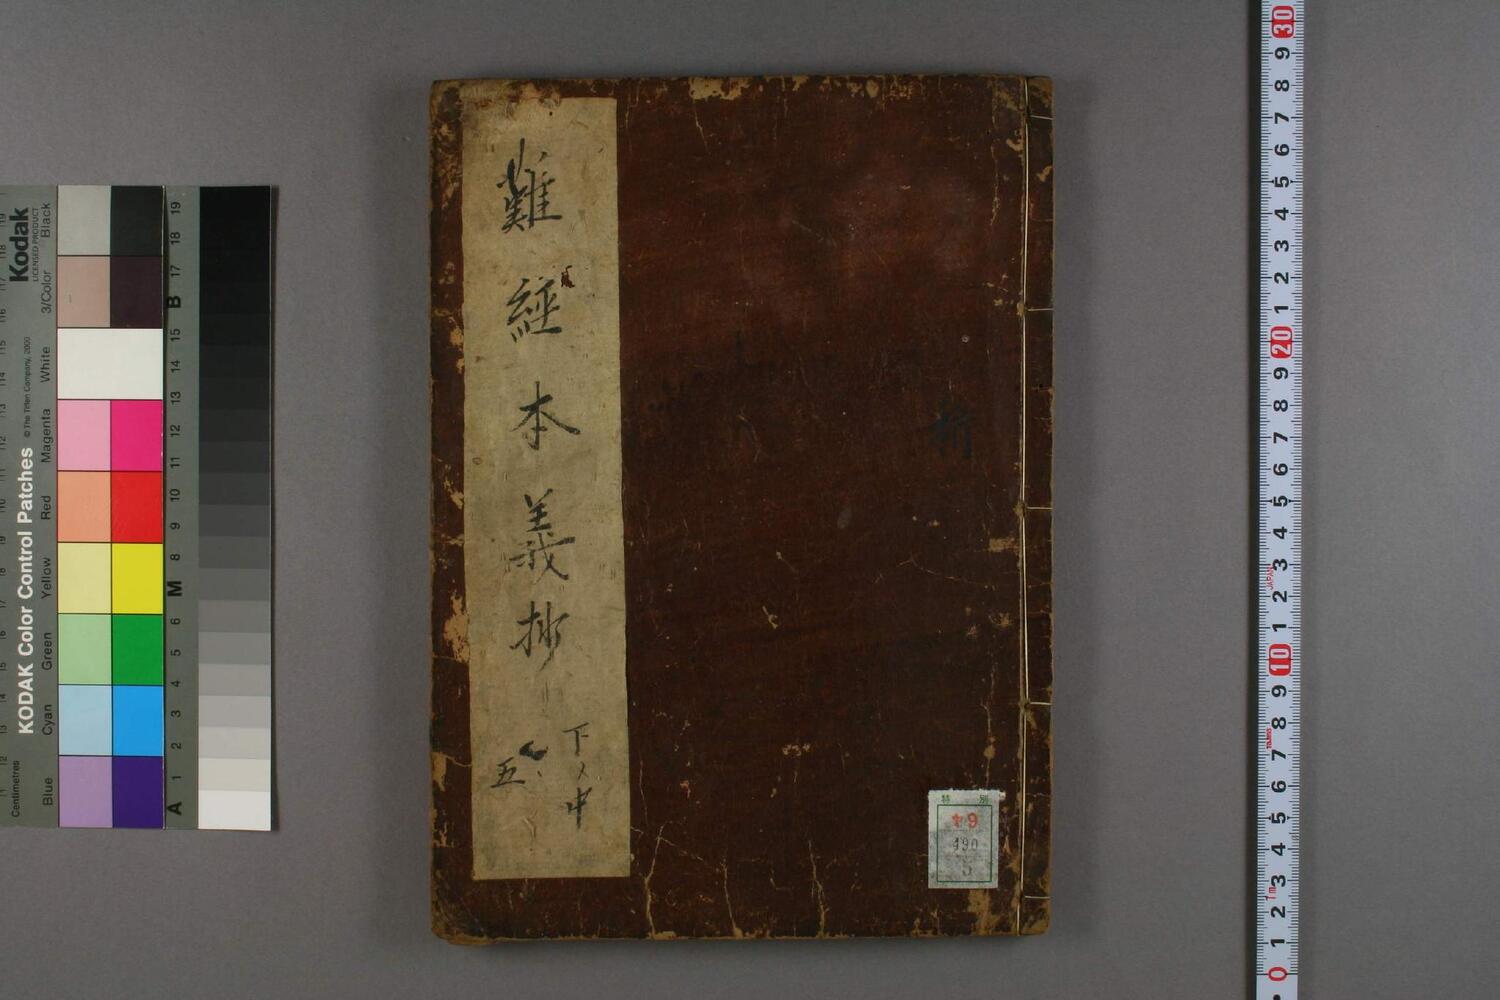 難經本義抄
下ノ中
五
特別
ヤ9
490
5
Kodak
LICENSED PRODUCT
KODAK Color Control Patches
© The Tiffen Company, 2000
Centimetres
Blue
Cyan
Green
Yellow
Red
Magenta
White
3/Color
Black
A 1 2 3 4 5 6 M 8 9 10 11 12 13 14 15 B 17 18 19
30 9 8 7 6 5 4 3 2 1 20 9 8 7 6 5 4 3 2 1 10 9 8 7 6 5 4 3 2 1 0
JAPAN
1m